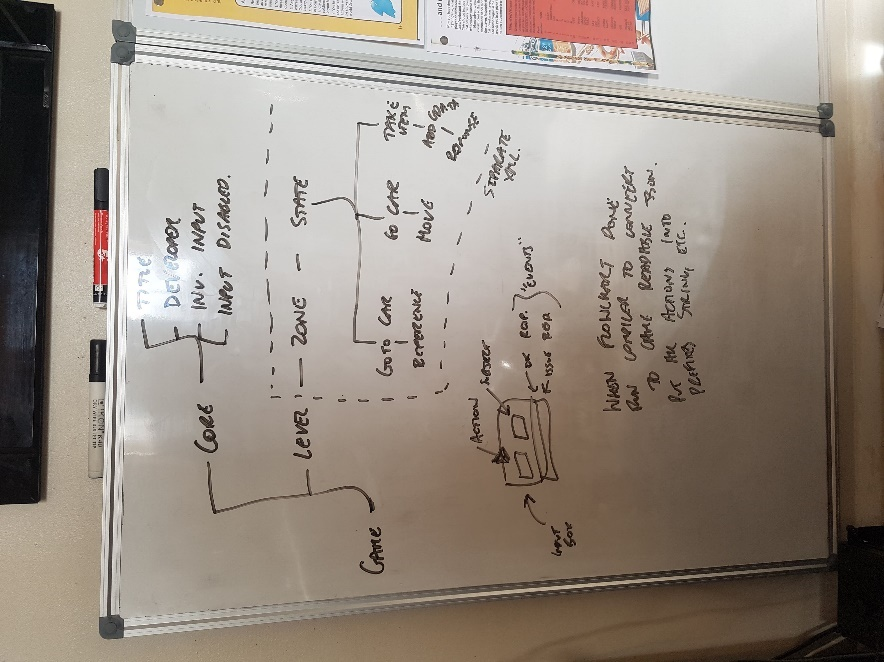 TITLE
DEVELOPER
INV. INPUT
INPUT DISABLED.
CORE
LEVEL
ZONE
STATE
GAME
GOTO CAR
REFERENCE
GO CAR
MOVE
TAKE
ITEM
ADD
RESPONSE
SEPARATE
XML.
ACTION
INPUT
BOX
OK ROP.
ISSUE ROP
"EVENTS"
WHEN FLOWCHART DONE
RUN COMPILER TO CONVERT
TO GAME READABLE JSON.
PUT ALL ACTIONS INTO
PREFIXES STRING, ETC.